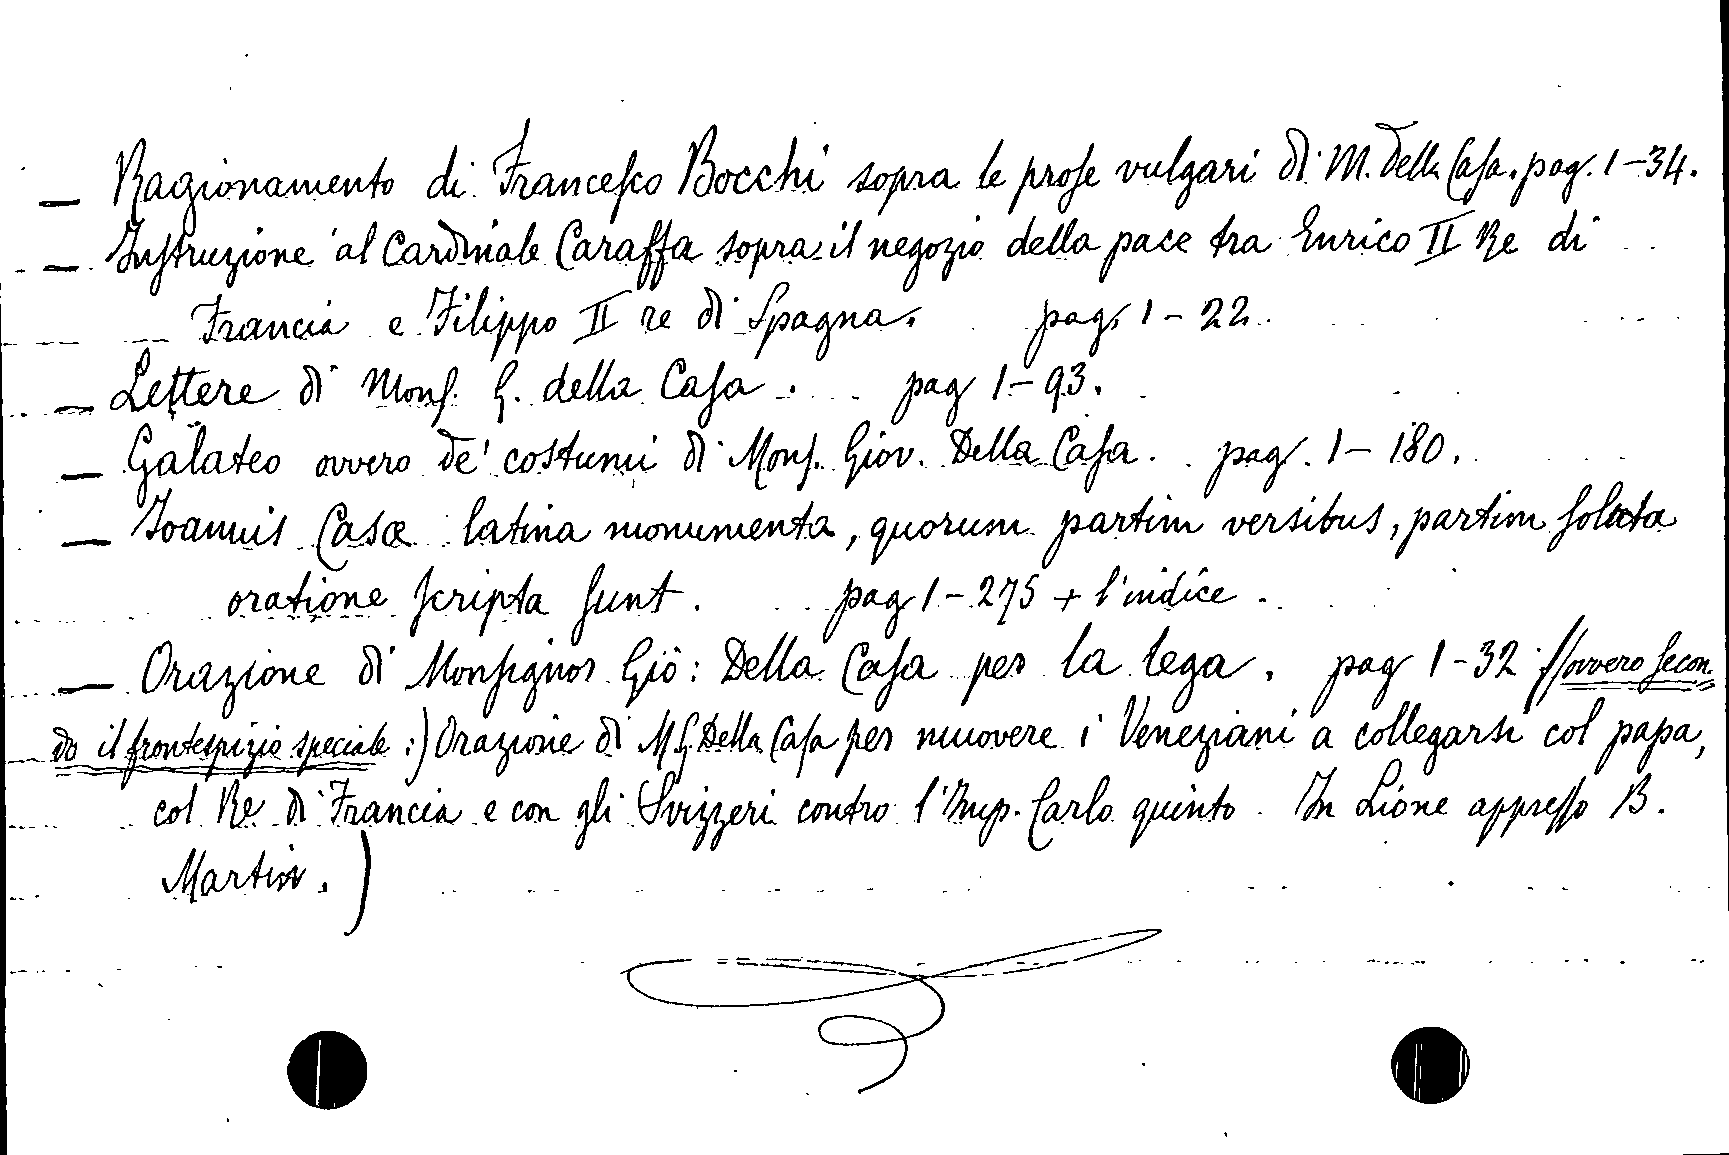 — Ragionamento di Francesco Bocchi sopra le prose vulgari di M. della Casa. pag. 1-34.
— Instruzione al Cardinale Caraffa sopra il negozio della pace tra Enrico II Re di
Francia e Filippo II re di Spagna. pag. 1-22.
— Lettere di Mons. G. della Casa. pag 1-93.
— Galateo ovvero de' costumi di Mons. Giov. Della Casa. pag. 1-180.
— Joannis Casæ latina monumenta, quorum partim versibus, partim soluta
oratione scripta sunt. pag 1-275 + l'indice.
— Orazione di Monsignor Giô: Della Casa per la lega. pag 1-32 (/ovvero secon-
do il frontespizio speciale :) Orazione di M G Della Casa per muovere i Veneziani a collegarsi col papa,
col Re di Francia e con gli Svizzeri contro l'Imp. Carlo quinto. In Lione appresso B.
Martin.)